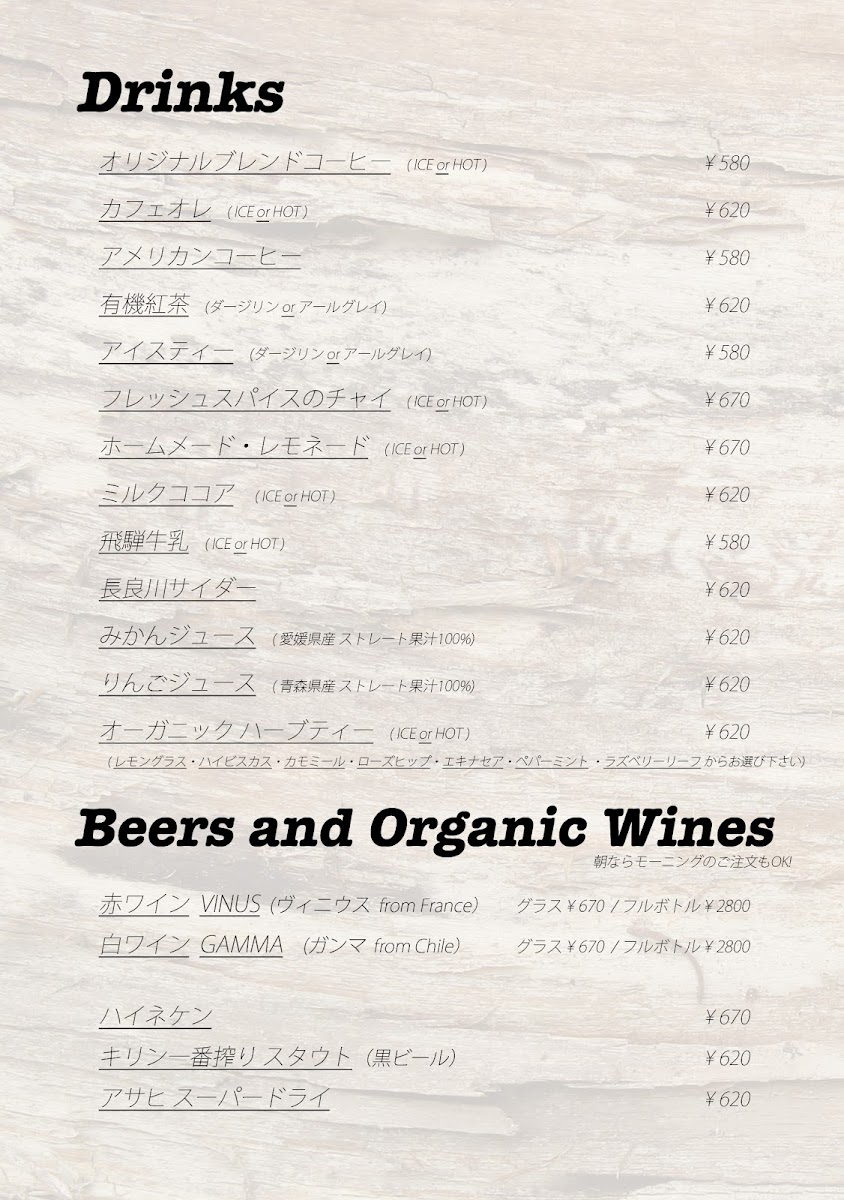 Drinks
オリジナルブレンドコーヒー (ICE or HOT) ¥580
カフェオレ (ICE or HOT) ¥620
アメリカンコーヒー ¥580
有機紅茶 (ダージリン or アールグレイ) ¥620
アイスティー (ダージリン or アールグレイ) ¥580
フレッシュスパイスのチャイ (ICE or HOT) ¥670
ホームメード・レモネード (ICE or HOT) ¥670
ミルクココア (ICE or HOT) ¥620
飛騨牛乳 (ICE or HOT) ¥580
長良川サイダー ¥620
みかんジュース (愛媛県産 ストレート果汁100%) ¥620
りんごジュース (青森県産 ストレート果汁100%) ¥620
オーガニック ハーブティー (ICE or HOT) ¥620
(レモングラス・ハイビスカス・カモミール・ローズヒップ・エキナセア・ペパーミント・ラズベリーリーフ からお選び下さい)
Beers and Organic Wines
朝ならモーニングのご注文もOK!
赤ワイン VINUS (ヴィニウス from France) グラス¥670 / フルボトル¥2800
白ワイン GAMMA (ガンマ from Chile) グラス¥670 / フルボトル¥2800
ハイネケン ¥670
キリン一番搾り スタウト (黒ビール) ¥620
アサヒ スーパードライ ¥620